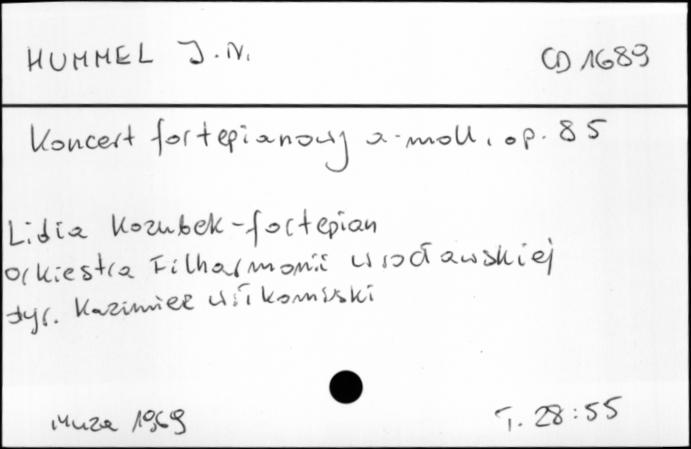 HUMMEL J. N. CD 1689
Koncert fortepianowy a-moll, op. 85
Lidia Kozubek - fortepian
Orkiestra Filharmonii Wrocławskiej
dyr. Kazimierz Wiłkomirski
Muza 1969 T. 28:55